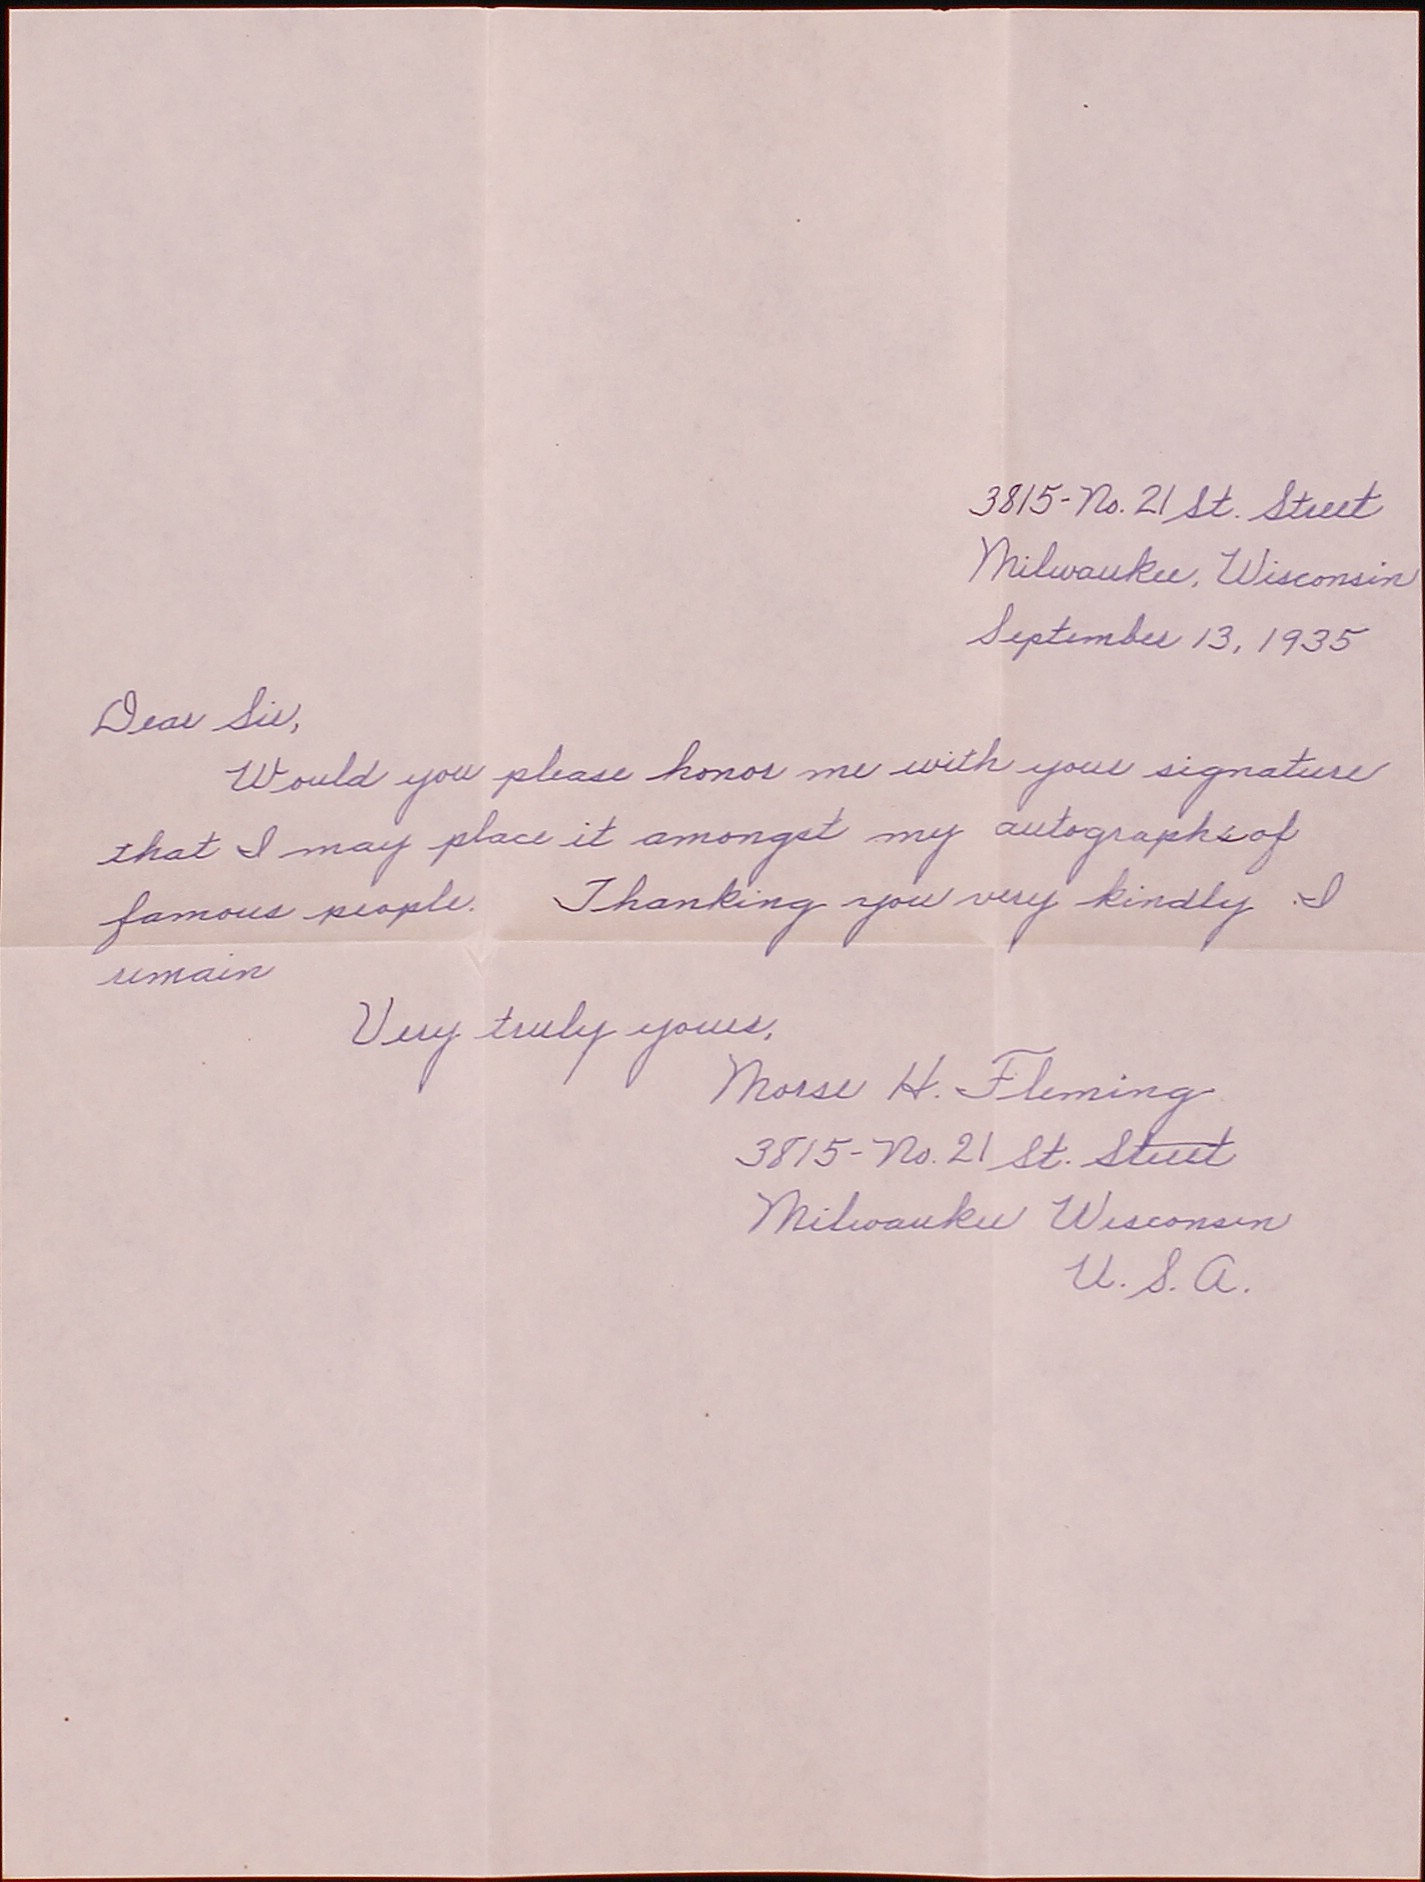 3815-No. 21 St. Street
Milwaukee, Wisconsin
September 13, 1935
Dear Sir,
Would you please honor me with your signature
that I may place it amongst my autographs of
famous people. Thanking you very kindly I
remain
Very truly yours,
Morse H. Fleming
3815-No. 21 St. Street
Milwaukee Wisconsin
U. S. A.